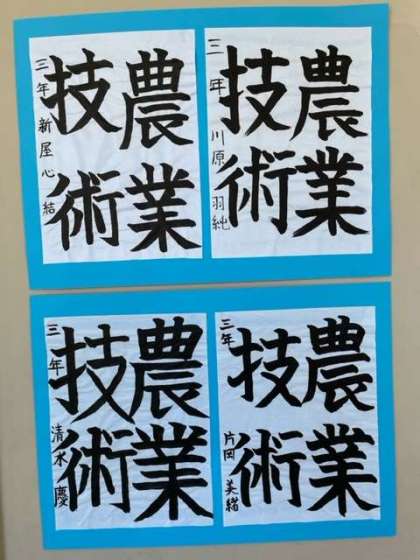 農業
技術
三年 川原羽純
農業
技術
三年 新屋心結
農業
技術
三年 片岡美緒
農業
技術
三年 清水慶